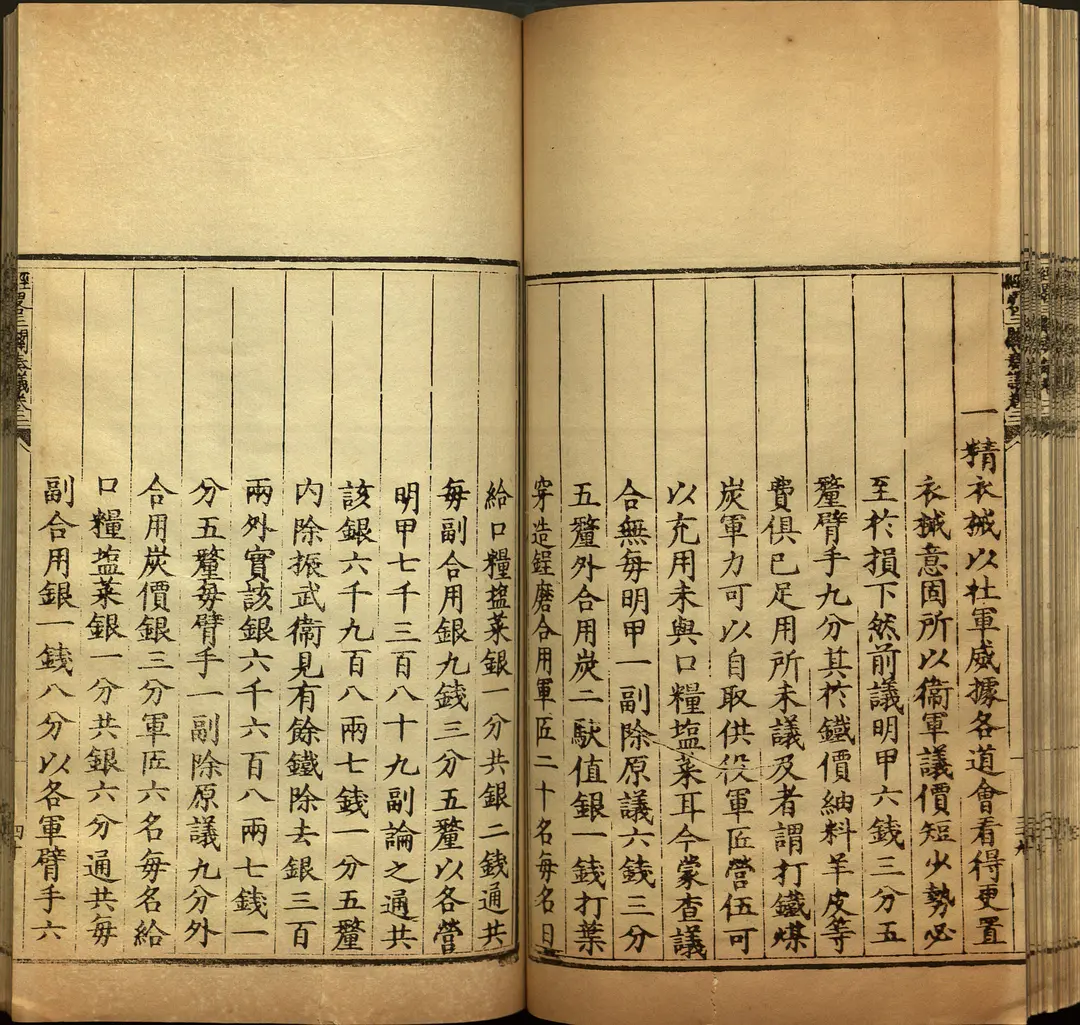 一精衣械以壯軍威據各道會看得更置
衣械意固所以衞軍議價短少勢必
至於損下然前議明甲六錢三分五
釐臂手九分其於鐵價紬料羊皮等
費俱已足用所未議及者謂打鐵煤
炭軍力可以自取供役軍匠營伍可
以充用未與口糧塩菜耳今蒙查議
合無每明甲一副除原議六錢三分
五釐外合用炭二馱值銀一錢打葉
穿造鋥磨合用軍匠二十名每名日
給口糧塩菜銀一分共銀二錢通共
每副合用銀九錢三分五釐以各營
明甲七千三百八十九副論之通共
該銀六千九百八兩七錢一分五釐
内除振武衞見有餘鐵除去銀三百
兩外實該銀六千六百八兩七錢一
分五釐每臂手一副除原議九分外
合用炭價銀三分軍匠六名每名給
口糧塩菜銀一分共銀六分通共每
副合用銀一錢八分以各軍臂手六
經畧三關奏議卷三
四十